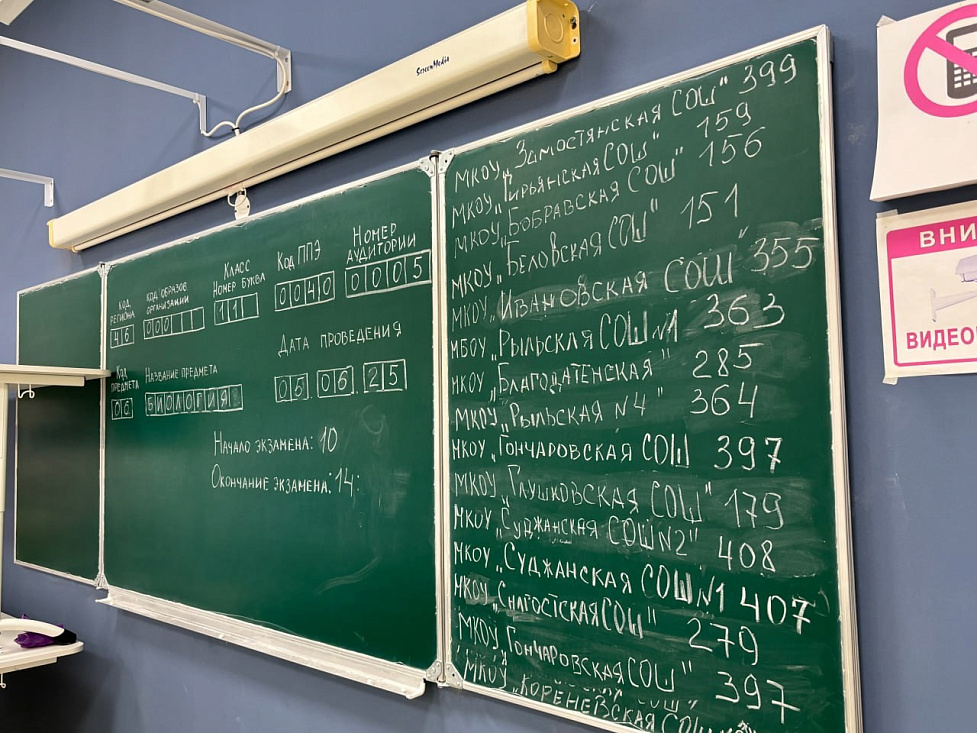 ScreenMedia
КОД РЕГИОНА
46
КОД ОБРАЗОВ ОРГАНИЗАЦИИ
000
КЛАСС НОМЕР БУКВА
11
КОД ППЭ
0040
НОМЕР АУДИТОРИИ
0005
КОД ПРЕДМЕТА
06
НАЗВАНИЕ ПРЕДМЕТА
БИОЛОГИЯ
ДАТА ПРОВЕДЕНИЯ
05.06.25
НАЧАЛО ЭКЗАМЕНА: 10
ОКОНЧАНИЕ ЭКЗАМЕНА: 14:
МКОУ „Замостянская СОШ" 399
МКОУ „Гирьянская СОШ" 159
МКОУ „Бобравская СОШ" 156
МКОУ „Беловская СОШ" 151
МКОУ „Ивановская СОШ" 355
МБОУ „Рыльскля СОШ N1 363
МКОУ „Благодатенская" 285
МКОУ „Рыльская N4" 364
МКОУ „Гончаровская СОШ 397
МКОУ „Глушковская СОШ" 179
МКОУ „Суджанская СОШ N2" 408
МКОУ „Суджанская СОШ N1 407
МКОУ „Снагостская СОШ" 279
МКОУ „Гончаровская СОШ" 397
МКОУ „Кореневская СОШ
ВНИ
ВИДЕО